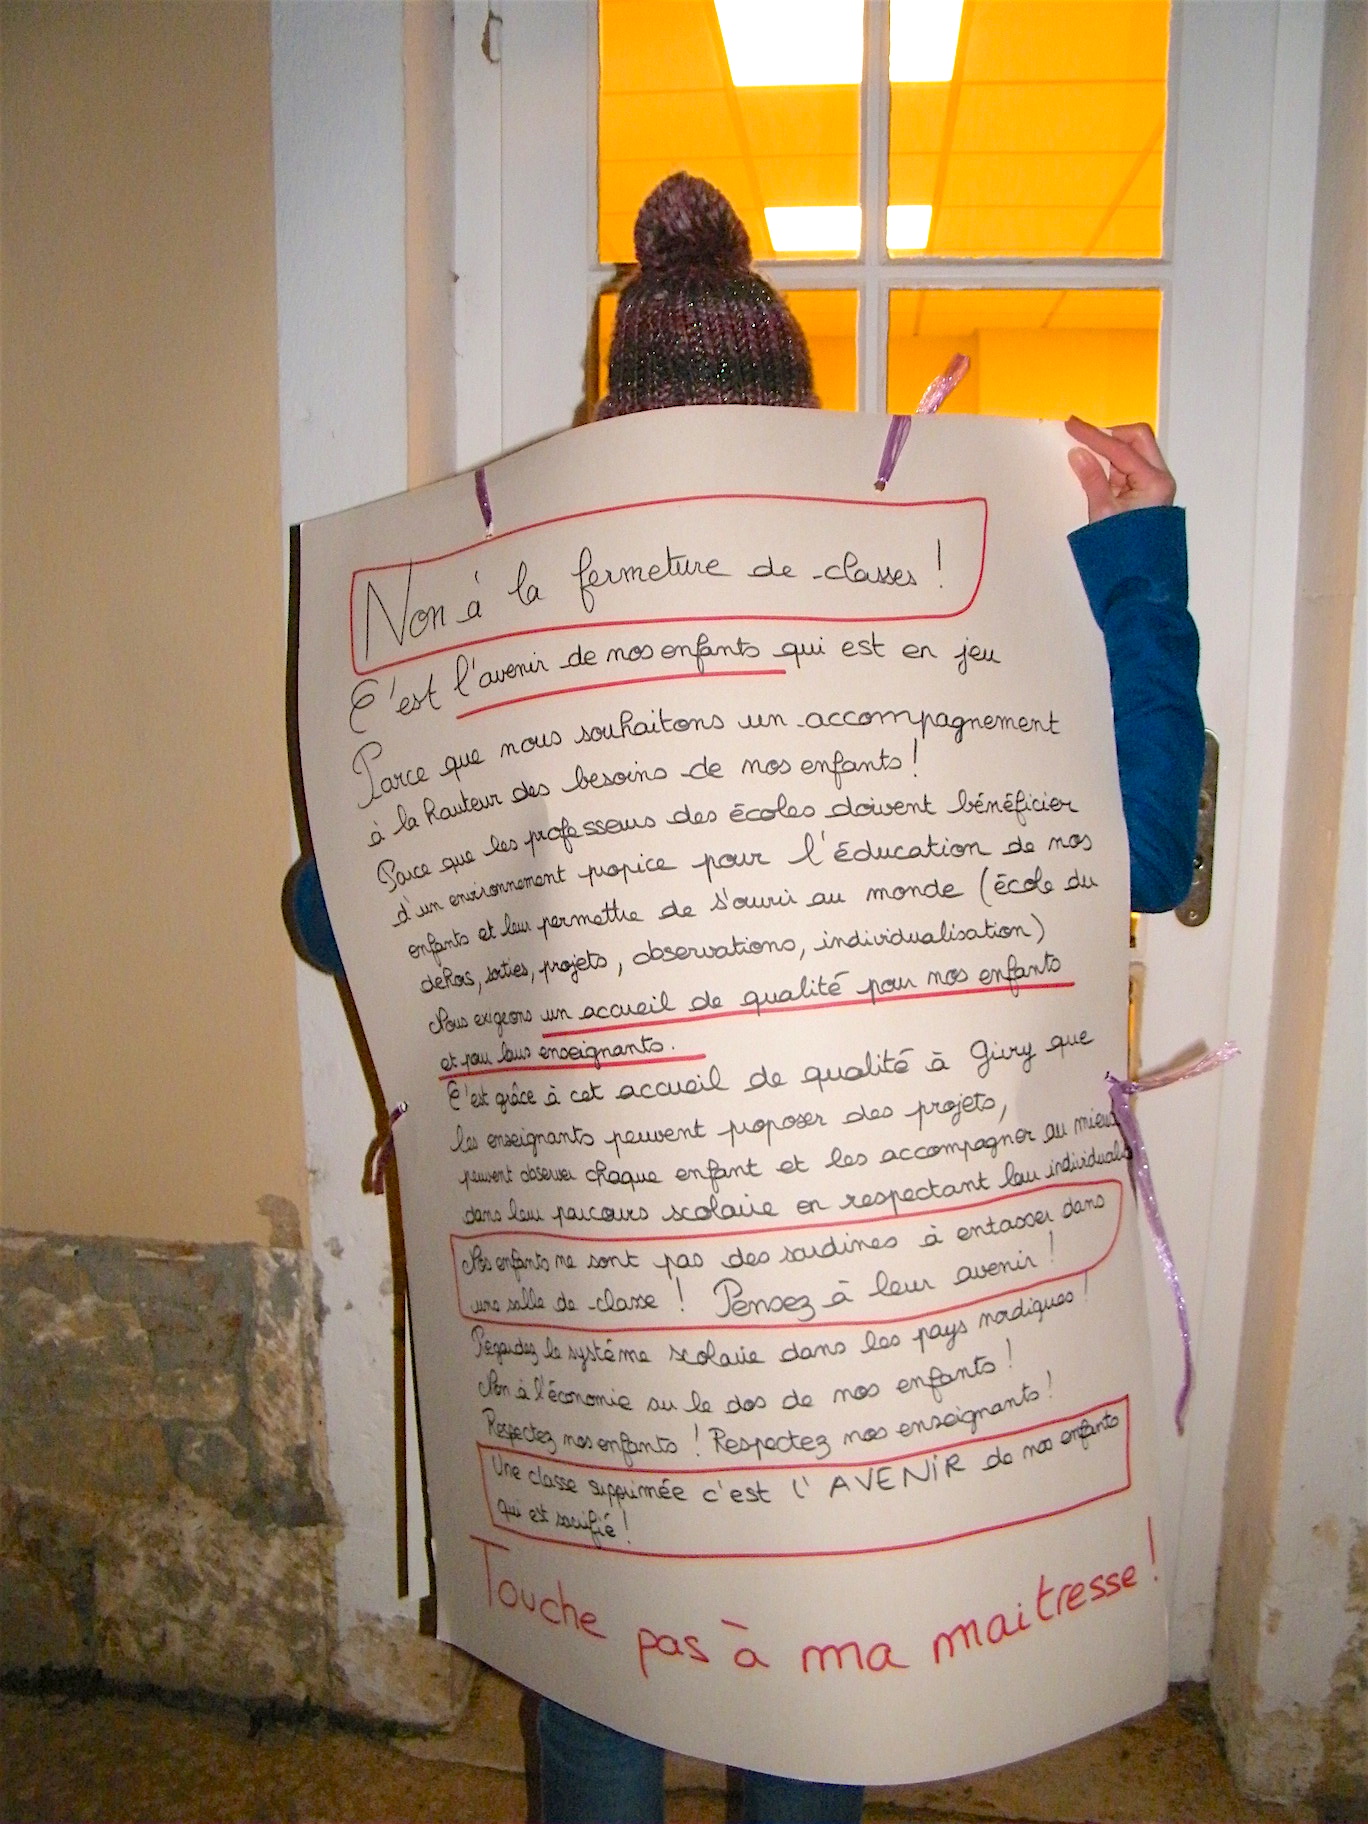 Non à la fermeture de classes !
C'est l'avenir de nos enfants qui est en jeu
Parce que nous souhaitons un accompagnement
à la hauteur des besoins de nos enfants !
Parce que les professeurs des écoles doivent bénéficier
d'un environnement propice pour l'éducation de nos
enfants et leur permettre de s'ouvrir au monde (école du
dehors, sorties, projets, observations, individualisation)
Nous exigeons un accueil de qualité pour nos enfants
et pour leurs enseignants.
C'est grâce à cet accueil de qualité à Givry que
les enseignants peuvent proposer des projets,
peuvent observer chaque enfant et les accompagner au mieux
dans leur parcours scolaire en respectant leur
Nos enfants ne sont pas des sardines à entasser dans
une salle de classe ! Pensez à leur avenir !
Regardez le système scolaire dans les pays nordiques !
Non à l'économie sur le dos de nos enfants !
Respectez nos enfants ! Respectez nos enseignants !
Une classe supprimée c'est l'AVENIR de nos enfants
qui est sacrifié !
Touche pas à ma maitresse !